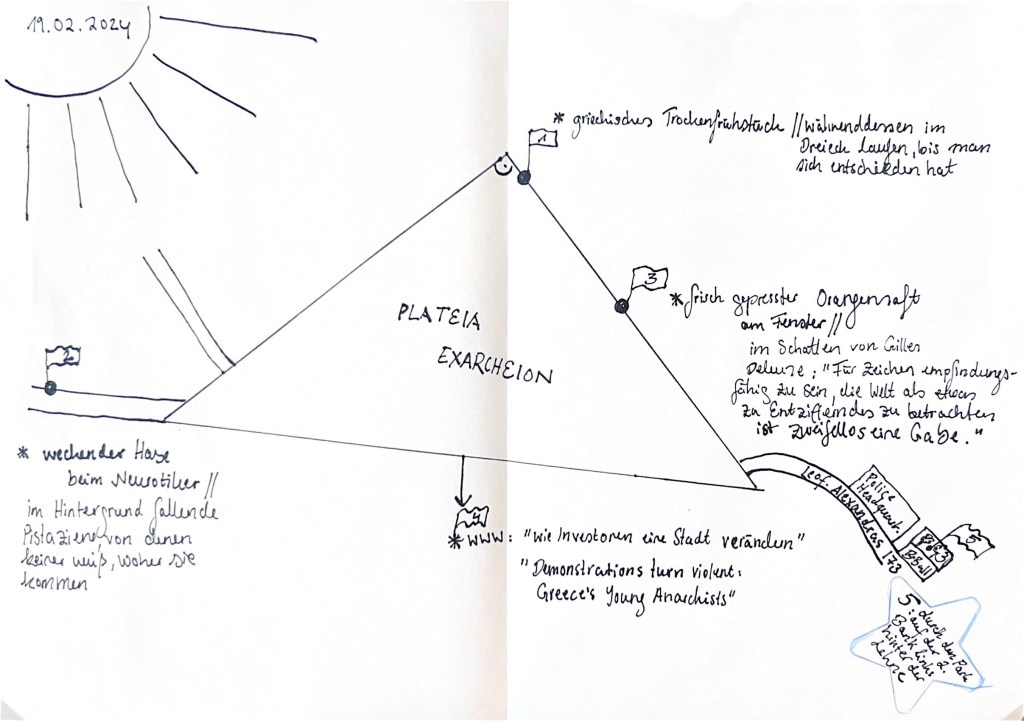 19.02.2024
1
* griechisches Trockenfrühstück // währenddessen im
Dreieck laufen, bis man
sich entschieden hat
3
* frisch gepresster Orangensaft
am Fenster //
im Schatten von Gilles
Deleuze: "Für Zeichen empfindungs-
fähig zu sein, die Welt als etwas
zu Entzifferndes zu betrachten
ist zweifellos eine Gabe."
PLATEIA
EXARCHEION
2
* weckender Hase
beim Neurotiker //
im Hintergrund fallende
Pistazien, von denen
keiner weiß, woher sie
kommen
4
* WWW: "wie Investoren eine Stadt verändern"
"Demonstrations turn violent:
Greece's Young Anarchists"
Leof. Alexandras 173
Police
Headquart.
BBall
5
5 durch den Park
: auf der 2.
Bank links
hinter der
Lehne